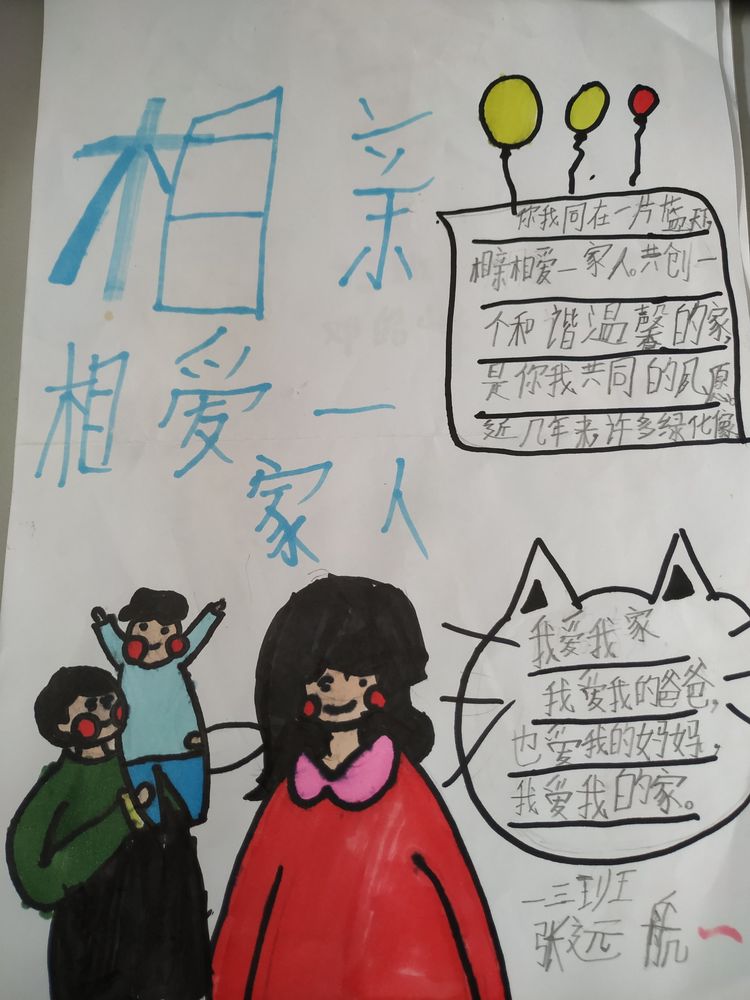 相亲
相爱一
家人
你我同在一片蓝天
相亲相爱一家人。共创一
个和谐温馨的家,
是你我共同的风愿。
近几年来,许多绿化像
我爱我家
我爱我的爸爸,
也爱我的妈妈,
我爱我的家。
一三班
张远航